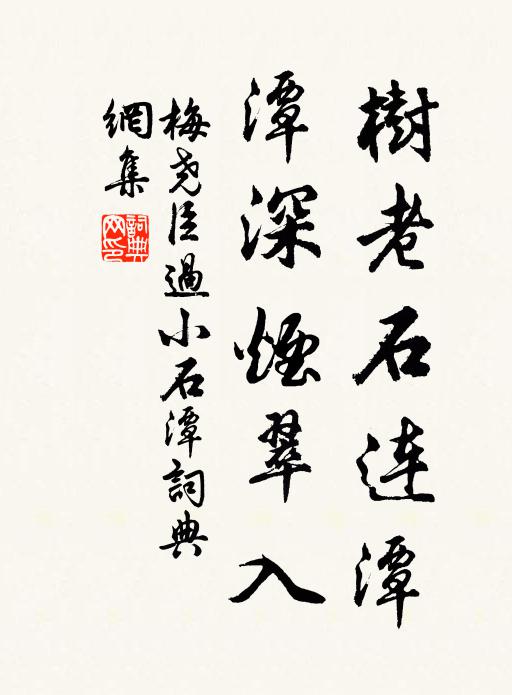 樹老石連潭
潭深煙翠入
梅堯臣過小石潭詞典
網集
詞典網印